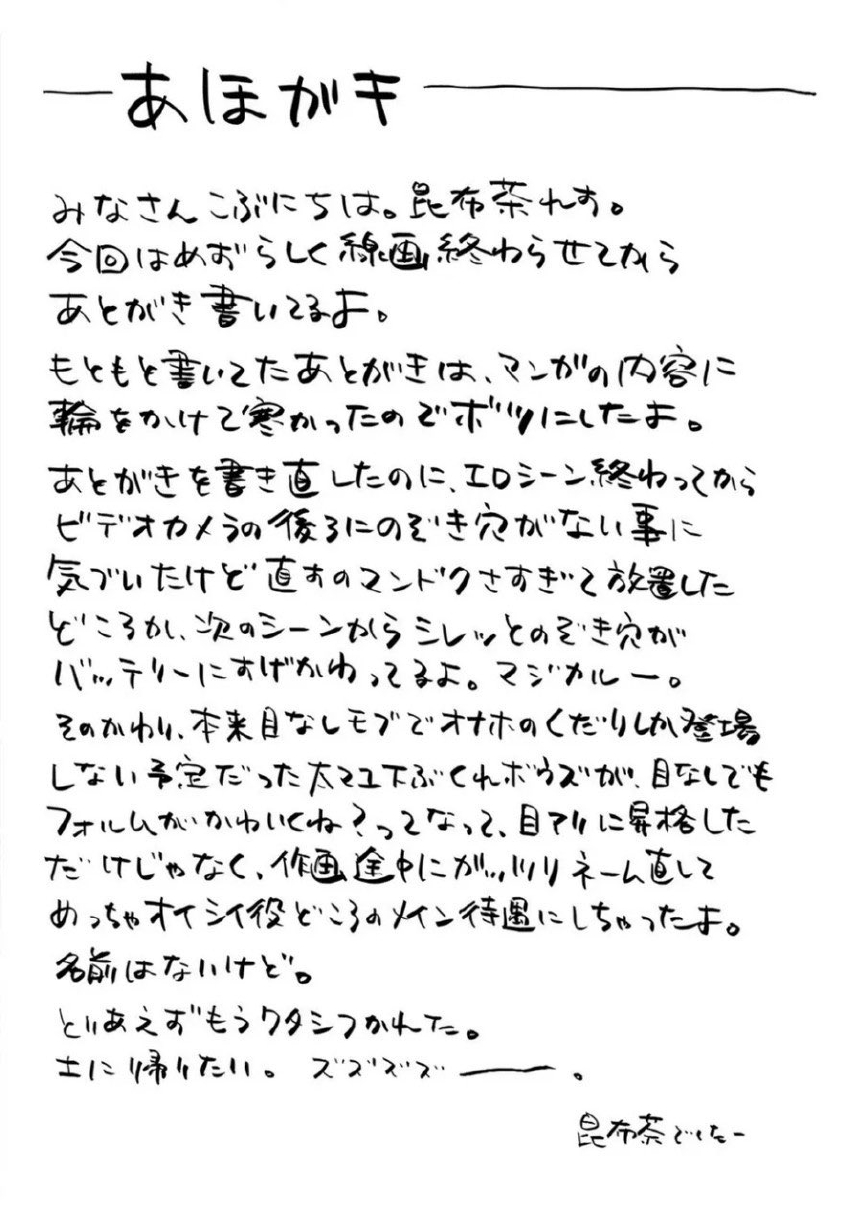 あほがき
みなさんこぶにちは。昆布茶れす。
今回はめずらしく線画終わらせてから
あとがき書いてるよ。
もともと書いてたあとがきは、マンガの内容に
輪をかけて寒かったのでボツにしたよ。
あとがきを書き直したのに、エロシーン終わってから
ビデオカメラの後ろにのぞき穴がない事に
気づいたけど直すのマンドクさすぎて放置した
どころか、次のシーンからシレッとのぞき穴が
バッテリーにすげかわってるよ。マジカルー。
そのかわり、本来目なしモブでオナホのくだりしか登場
しない予定だった太マユ下ぶくれボウズが、目なしでも
フォルムがかわいくね?ってなって、目アリに昇格した
だけじゃなく、作画途中にガッツリネーム直して
めっちゃオイシイ役どころのメイン待遇にしちゃったよ。
名前はないけど。
とりあえずもうワタシつかれた。
土に帰りたい。ズズズズー。
昆布茶でしたー